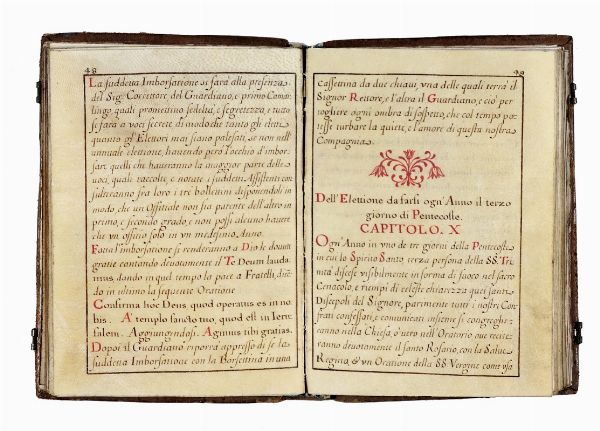 48
La suddetta Imborsatione si farà alla presenza
del Sigr. Correttore del Guardiano, e primo Camar=
lingo quali promettino fedeltà, e segretezza, e tutto
si farà a voci secrete di modo che tanto gli eletti
quanto gl'Elettori mai siano palesati, se non nell'
annuale elettione, havendo però l'occhio d'imbor=
sar quelli che haveranno la maggior parte delle
voci, quali raccolti, e notate i suddetti Assistenti con=
sulteranno fra loro i tre bollettini disponendoli in
modo, che un Offitiale non sia parente dell'altro in
primo, e secondo grado, e non possi alcuno havere
che un offitio solo in un medesimo Anno.
Fatta l'imborsatione si renderanno a Dio le dovute
gratie cantando devotamente il Te Deum lauda=
mus dando in quel tempo la pace a Fratelli, dicē=
do in ultimo la seguente Oratione
Confirma hoc Deus quod operatus es in no=
bis. A' templo sancto tuo, quod est in Ieru=
salem. Aggiungendosi. Agimus tibi gratias.
Dopoi il Guardiano riporrà appresso di se la
suddetta Imborsatione con la Borsettina in una
49
cassettina da due chiavi, una delle quali terrà il
Signor Rettore, e l'altra il Guardiano, e ciò per
togliere ogni ombra di sospetto, che col tempo po=
tesse turbare la quiete, e l'amore di questa nostra
Compagnia.
Dell'Elettione da farsi ogn'Anno il terzo
giorno di Pentecoste.
CAPITOLO. X
Ogn'Anno in uno de tre giorni della Pentecoste
in cui lo Spirito Santo terza persona della SS. Tri=
nità discese visibilmente in forma di fuoco nel sacro
Cenacolo, e riempì di celeste chiarezza quei santi
Discepoli del Signore, parimente tutti i nostri Con=
frati confessati, e comunicati insieme si congreghe=
ranno nella Chiesa, o' vero nell'Oratorio ove recite=
ranno devotamente il santo Rosario, con la Salve
Regina, & un Oratione della SS. Vergine come usa